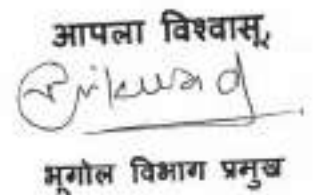 आपला विश्वासू,
भूगोल विभाग प्रमुख